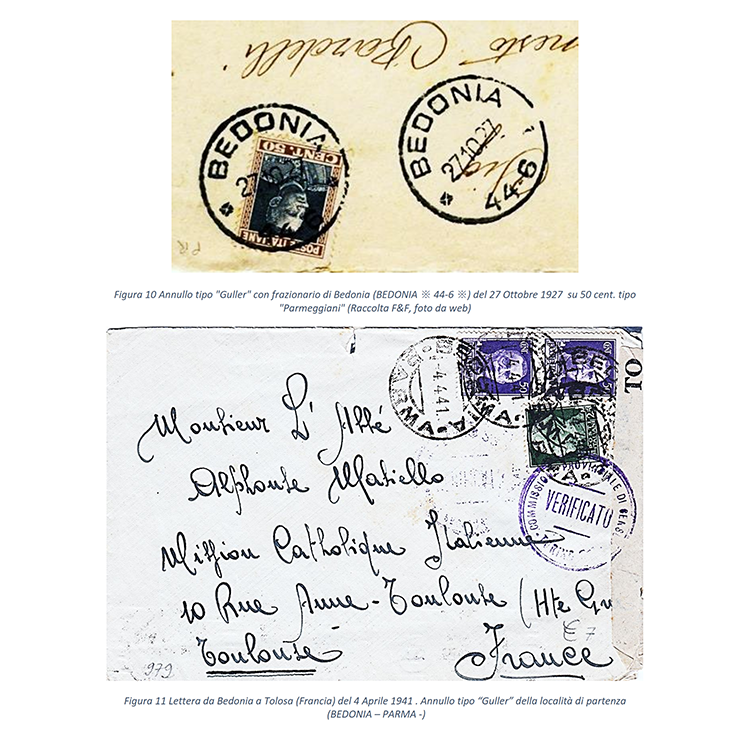 nesto Bardelli
BEDONIA
27.10.27
44-6
BEDONIA
27.10.2
CENT. 50
POSTE ITALIANE
PiR
Figura 10 Annullo tipo "Guller" con frazionario di Bedonia (BEDONIA ※ 44-6 ※) del 27 Ottobre 1927 su 50 cent. tipo
"Parmeggiani" (Raccolta F&F, foto da web)
-4.4.41.
TO
COMMISSIONE PROVINCIALE DI CENS
VERIFICATO
Monsieur L' Abbé
Alphonse Matiello
Mission Catholique Italienne
10 Rue Anne-Toulouse (Hte Gar
Toulouse
France
£ 7
979
Figura 11 Lettera da Bedonia a Tolosa (Francia) del 4 Aprile 1941 . Annullo tipo “Guller” della località di partenza
(BEDONIA – PARMA -)